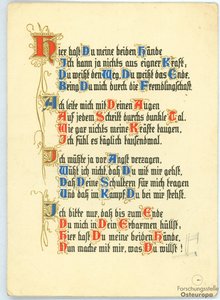 Hier hast Du meine beiden Hände
Ich kann ja nichts aus eigner Kraft,
Du weißt den Weg, Du weißt das Ende,
Bring Du mich durch die Fremdlingschaft.
Ach leite mich mit Deinen Augen
Auf jedem Schritt durchs dunkle Tal.
Wie gar nichts meine Kräfte taugen,
Ich fühl es täglich tausendmal.
Ich müßte ja vor Angst verzagen,
Wüßt ich nicht, daß Du mit mir gehst,
Daß Deine Schultern für mich tragen
Und daß im Kampf Du bei mir stehst.
Ich bitte nur, daß bis zum Ende
Du mich in Dein Erbarmen hüllst,
Hier hast Du meine beiden Hände,
Nun mache mit mir, was Du willst!
Forschungsstelle
Osteuropa